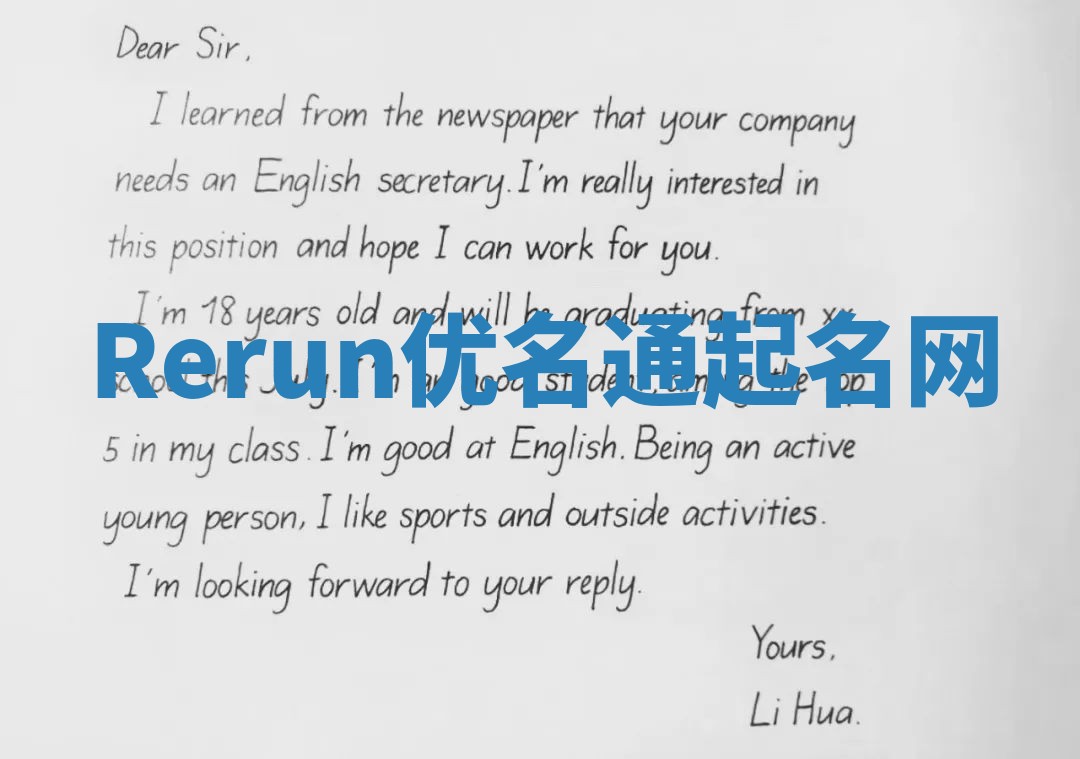 Dear Sir,
I learned from the newspaper that your company
needs an English secretary. I'm really interested in
this position and hope I can work for you.
I'm 18 years old and will be graduating from xx
Rerun优名通起名网
school this July. I'm a good student, among the top
5 in my class. I'm good at English. Being an active
young person, I like sports and outside activities.
I'm looking forward to your reply.
Yours,
Li Hua.